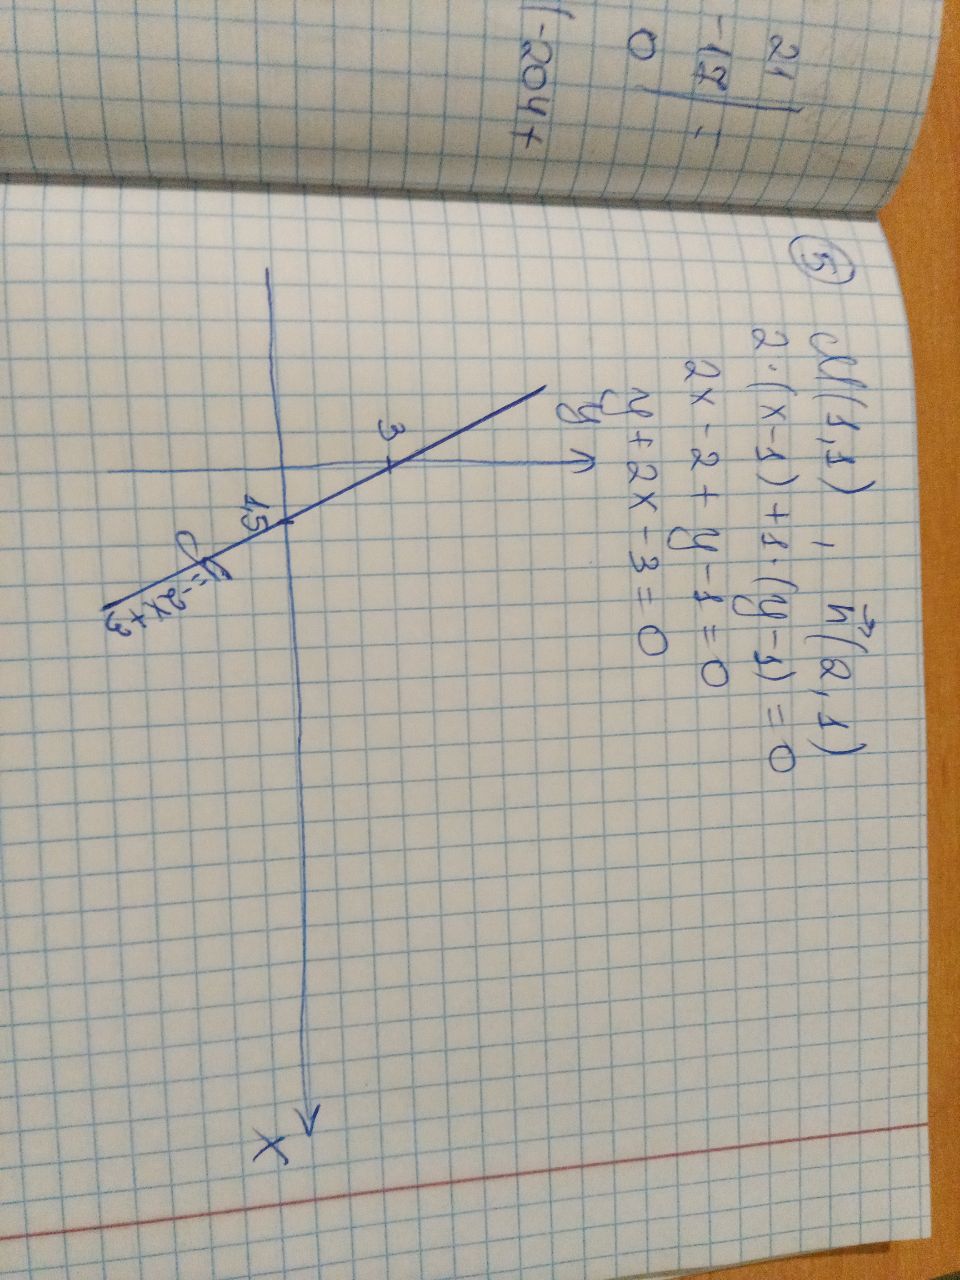 21
-17 =
0
(-204+
5 M(1,1) , n⃗(2,1)
2·(x-1)+1·(y-1)=0
2x-2+y-1=0
y+2x-3=0
y
3
1,5
x
y=-2x+3